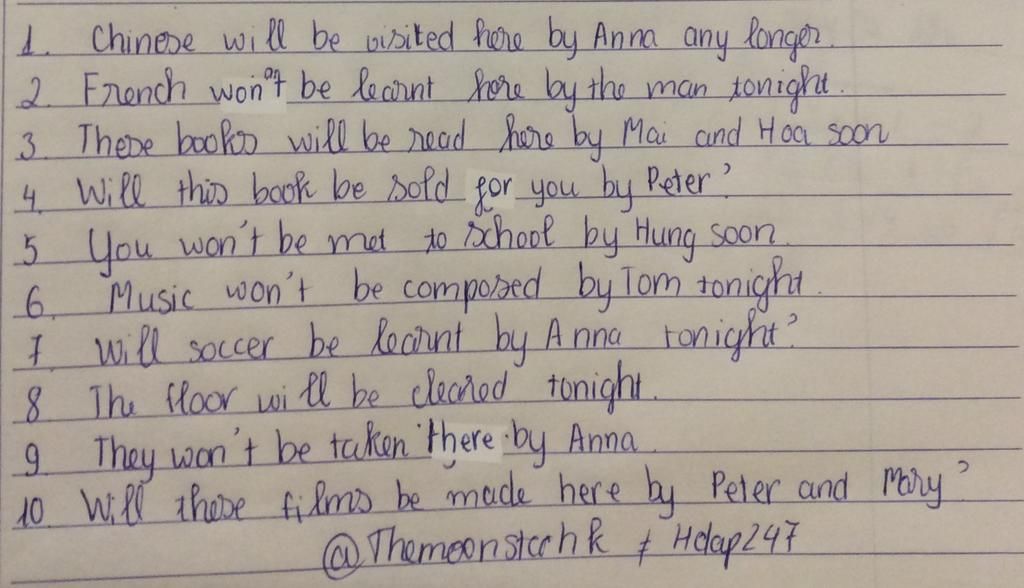 1. Chinese will be visited here by Anna any longer.
2. French won't be learnt here by the man tonight.
3. These books will be read here by Mai and Hoa soon
4. Will this book be sold for you by Peter?
5 You won't be met to school by Hung soon.
6. Music won't be composed by Tom tonight.
7 Will soccer be learnt by Anna tonight?
8 The floor will be cleared tonight.
9 They won't be taken there by Anna
10 Will these films be made here by Peter and Mary?
@Themoonstarhk ≠ Hdap247